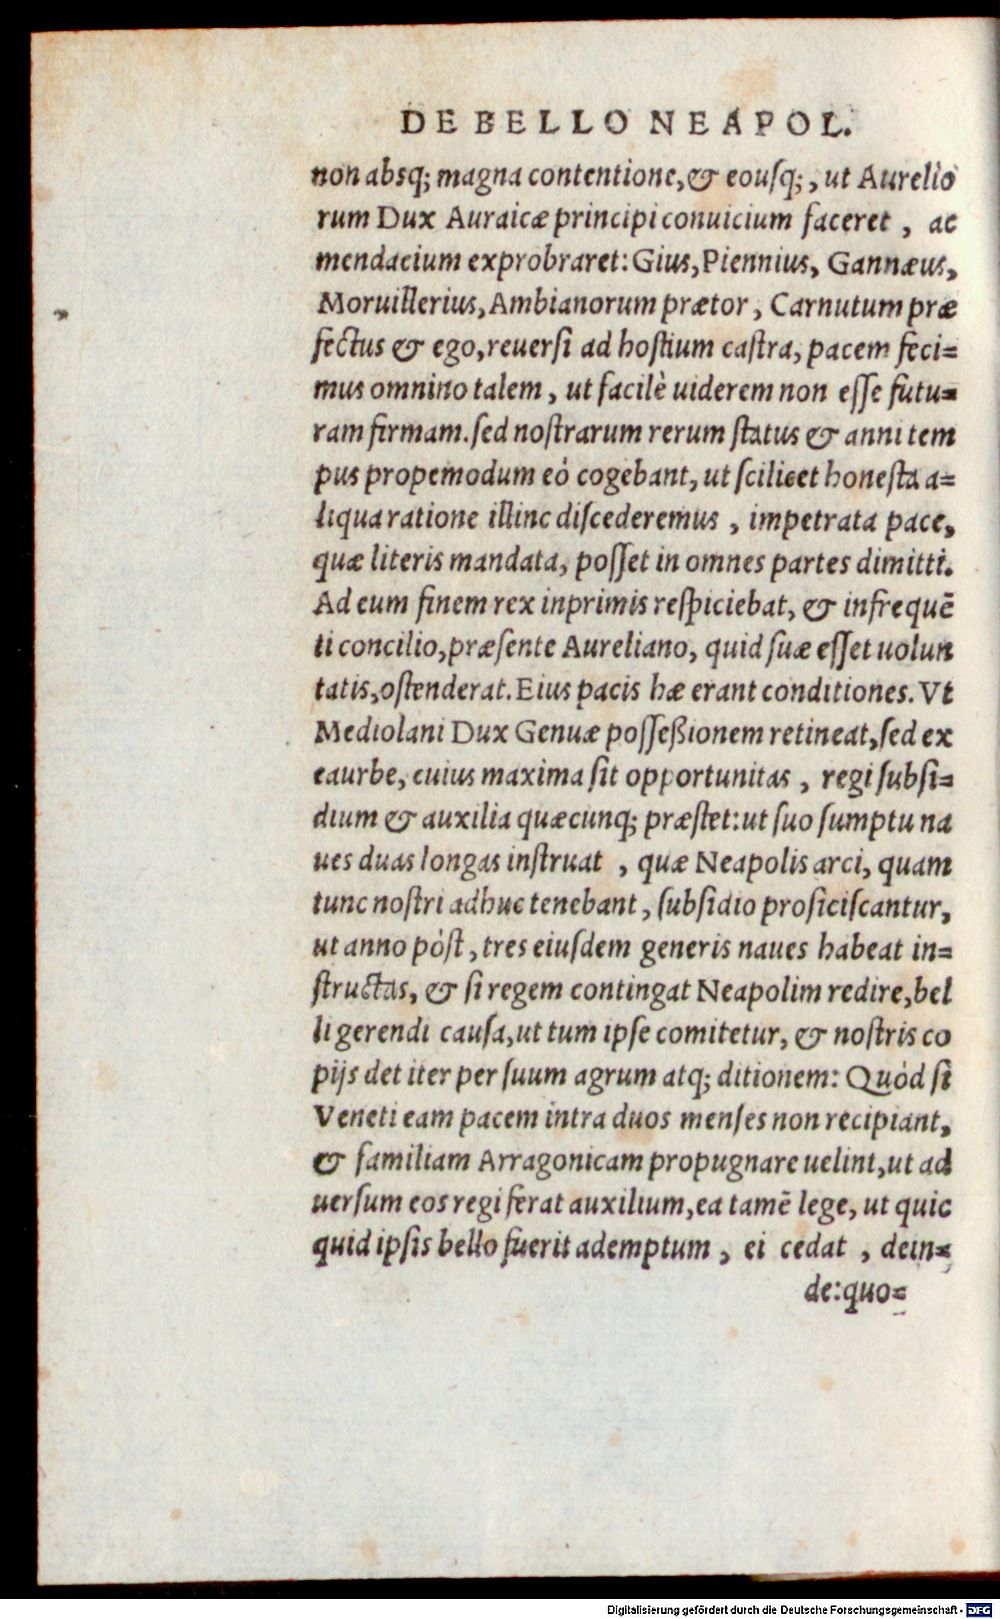 DE BELLO NEAPOL.
non absq; magna contentione, & eousq;, ut Aurelio
rum Dux Auraicæ principi conuicium faceret, ac
mendacium exprobraret: Gius, Piennius, Gannæus,
Moruillerius, Ambianorum prætor, Carnutum præ
fectus & ego, reuersi ad hostium castra, pacem feci=
mus omnino talem, ut facilè uiderem non esse futu=
ram firmam. sed nostrarum rerum status & anni tem
pus propemodum eò cogebant, ut scilicet honesta a=
liqua ratione illinc discederemus, impetrata pace,
quæ literis mandata, posset in omnes partes dimitti.
Ad eum finem rex inprimis respiciebat, & in frequē
ti concilio, præsente Aureliano, quid suæ esset uolun
tatis, ostenderat. Eius pacis hæ erant conditiones. Vt
Mediolani Dux Genuæ posseßionem retineat, sed ex
ea urbe, cuius maxima sit opportunitas, regi subsi=
dium & auxilia quæcunq; præstet: ut suo sumptu na
ues duas longas instruat, quæ Neapolis arci, quam
tunc nostri adhuc tenebant, subsidio proficiscantur,
ut anno pòst, tres eiusdem generis naues habeat in=
structas, & si regem contingat Neapolim redire, bel
li gerendi causa, ut tum ipse comitetur, & nostris co
pijs det iter per suum agrum atq; ditionem: Quòd si
Veneti eam pacem intra duos menses non recipiant,
& familiam Arragonicam propugnare uelint, ut ad
uersum eos regi ferat auxilium, ea tamē lege, ut quic
quid ipsis bello fuerit ademptum, ei cedat, dein=
de: quo=
Digitalisierung gefördert durch die Deutsche Forschungsgemeinschaft - DFG